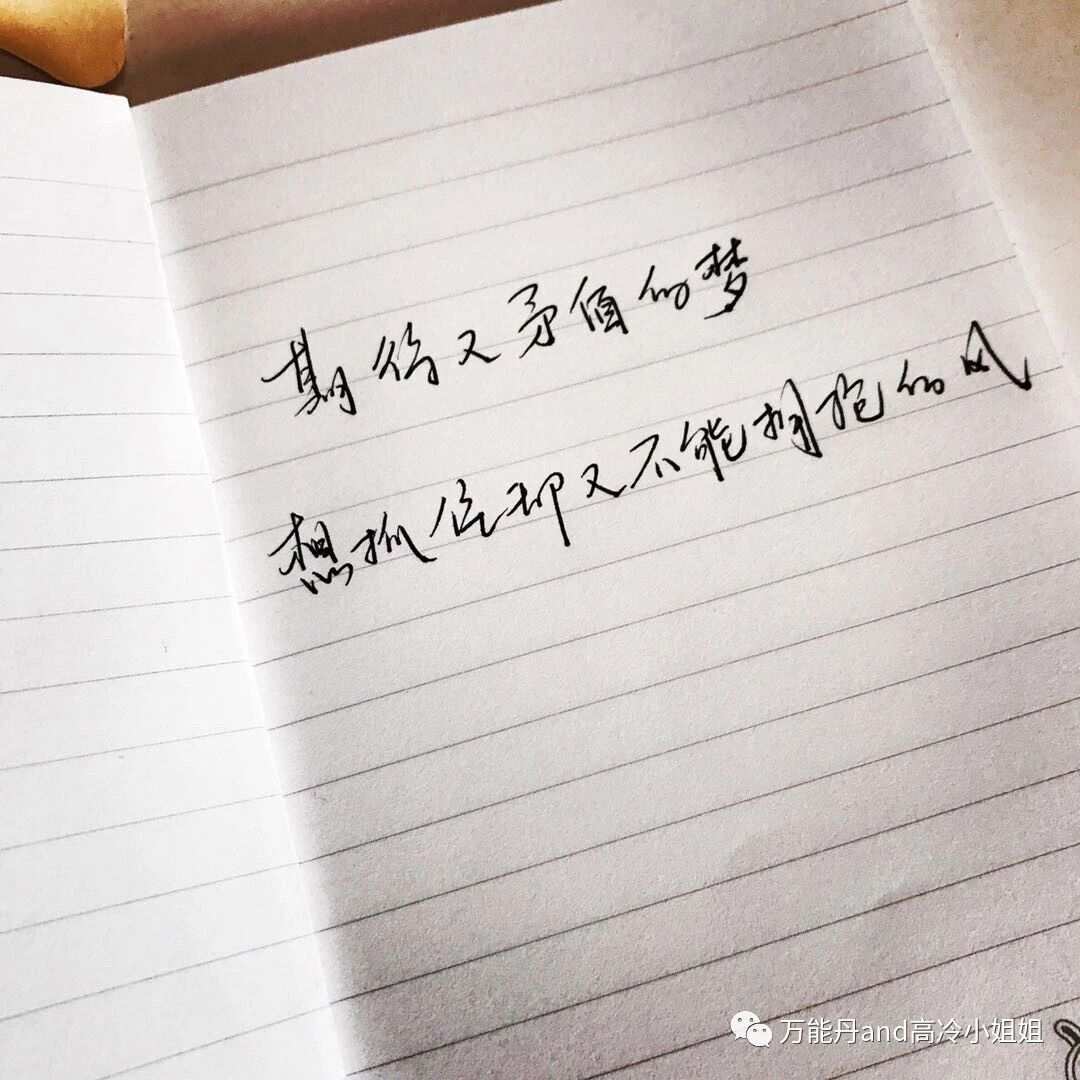 期待又矛盾的梦
想抓住却又不能拥抱的风
万能丹and高冷小姐姐